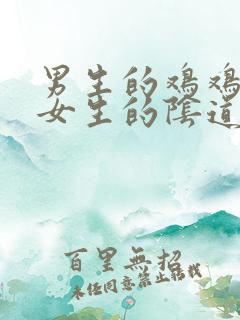 男生的鸡鸡
女生的陰道
百里無招
未经同意禁止转载